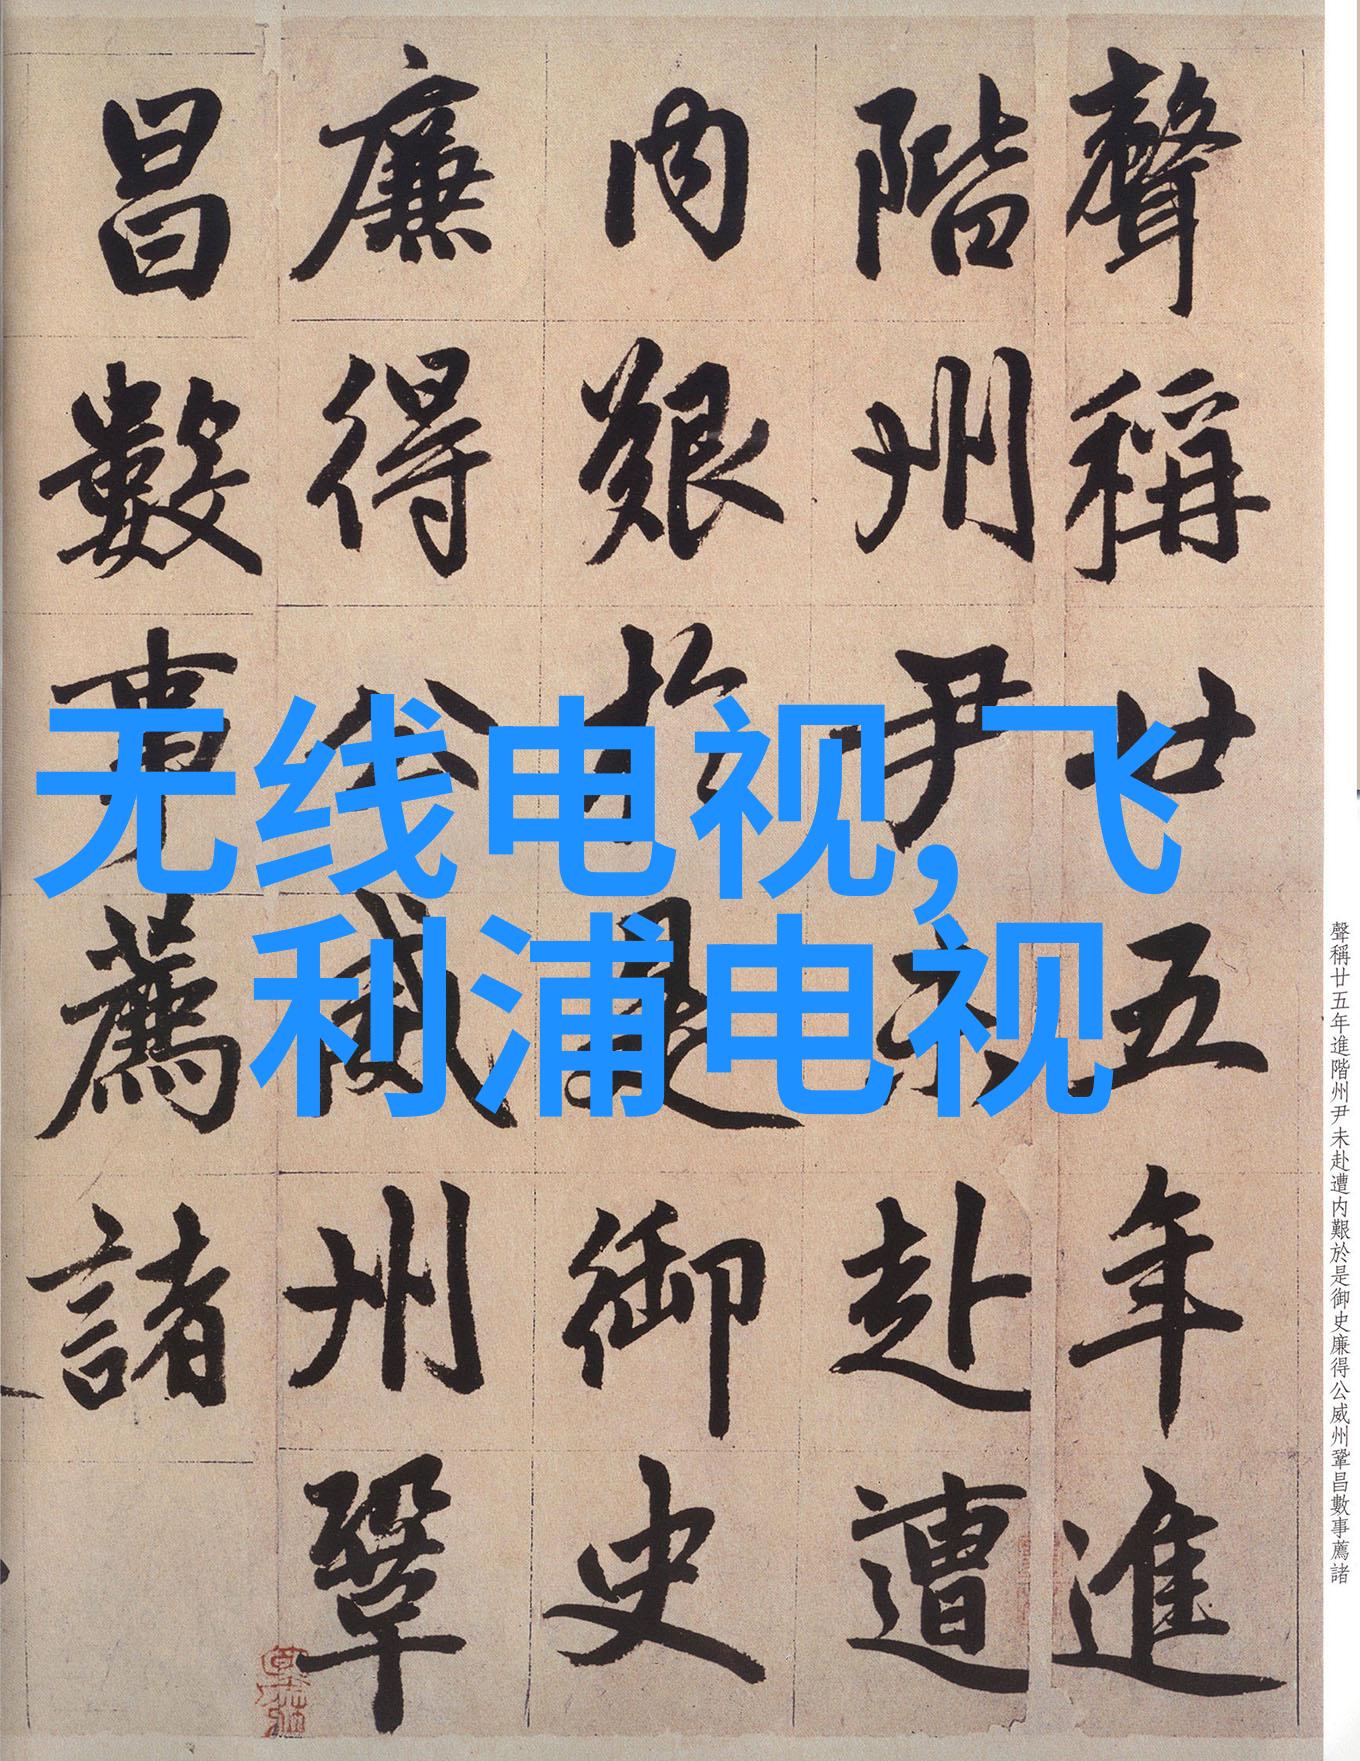 聲稱廿五年進
階州尹未赴遭
內艱於是御史
廉得公威州鞏
昌數事薦諸
无线电视,飞
利浦电视
聲稱廿五年進階州尹未赴遭内艱於是御史廉得公威州鞏昌數事薦諸